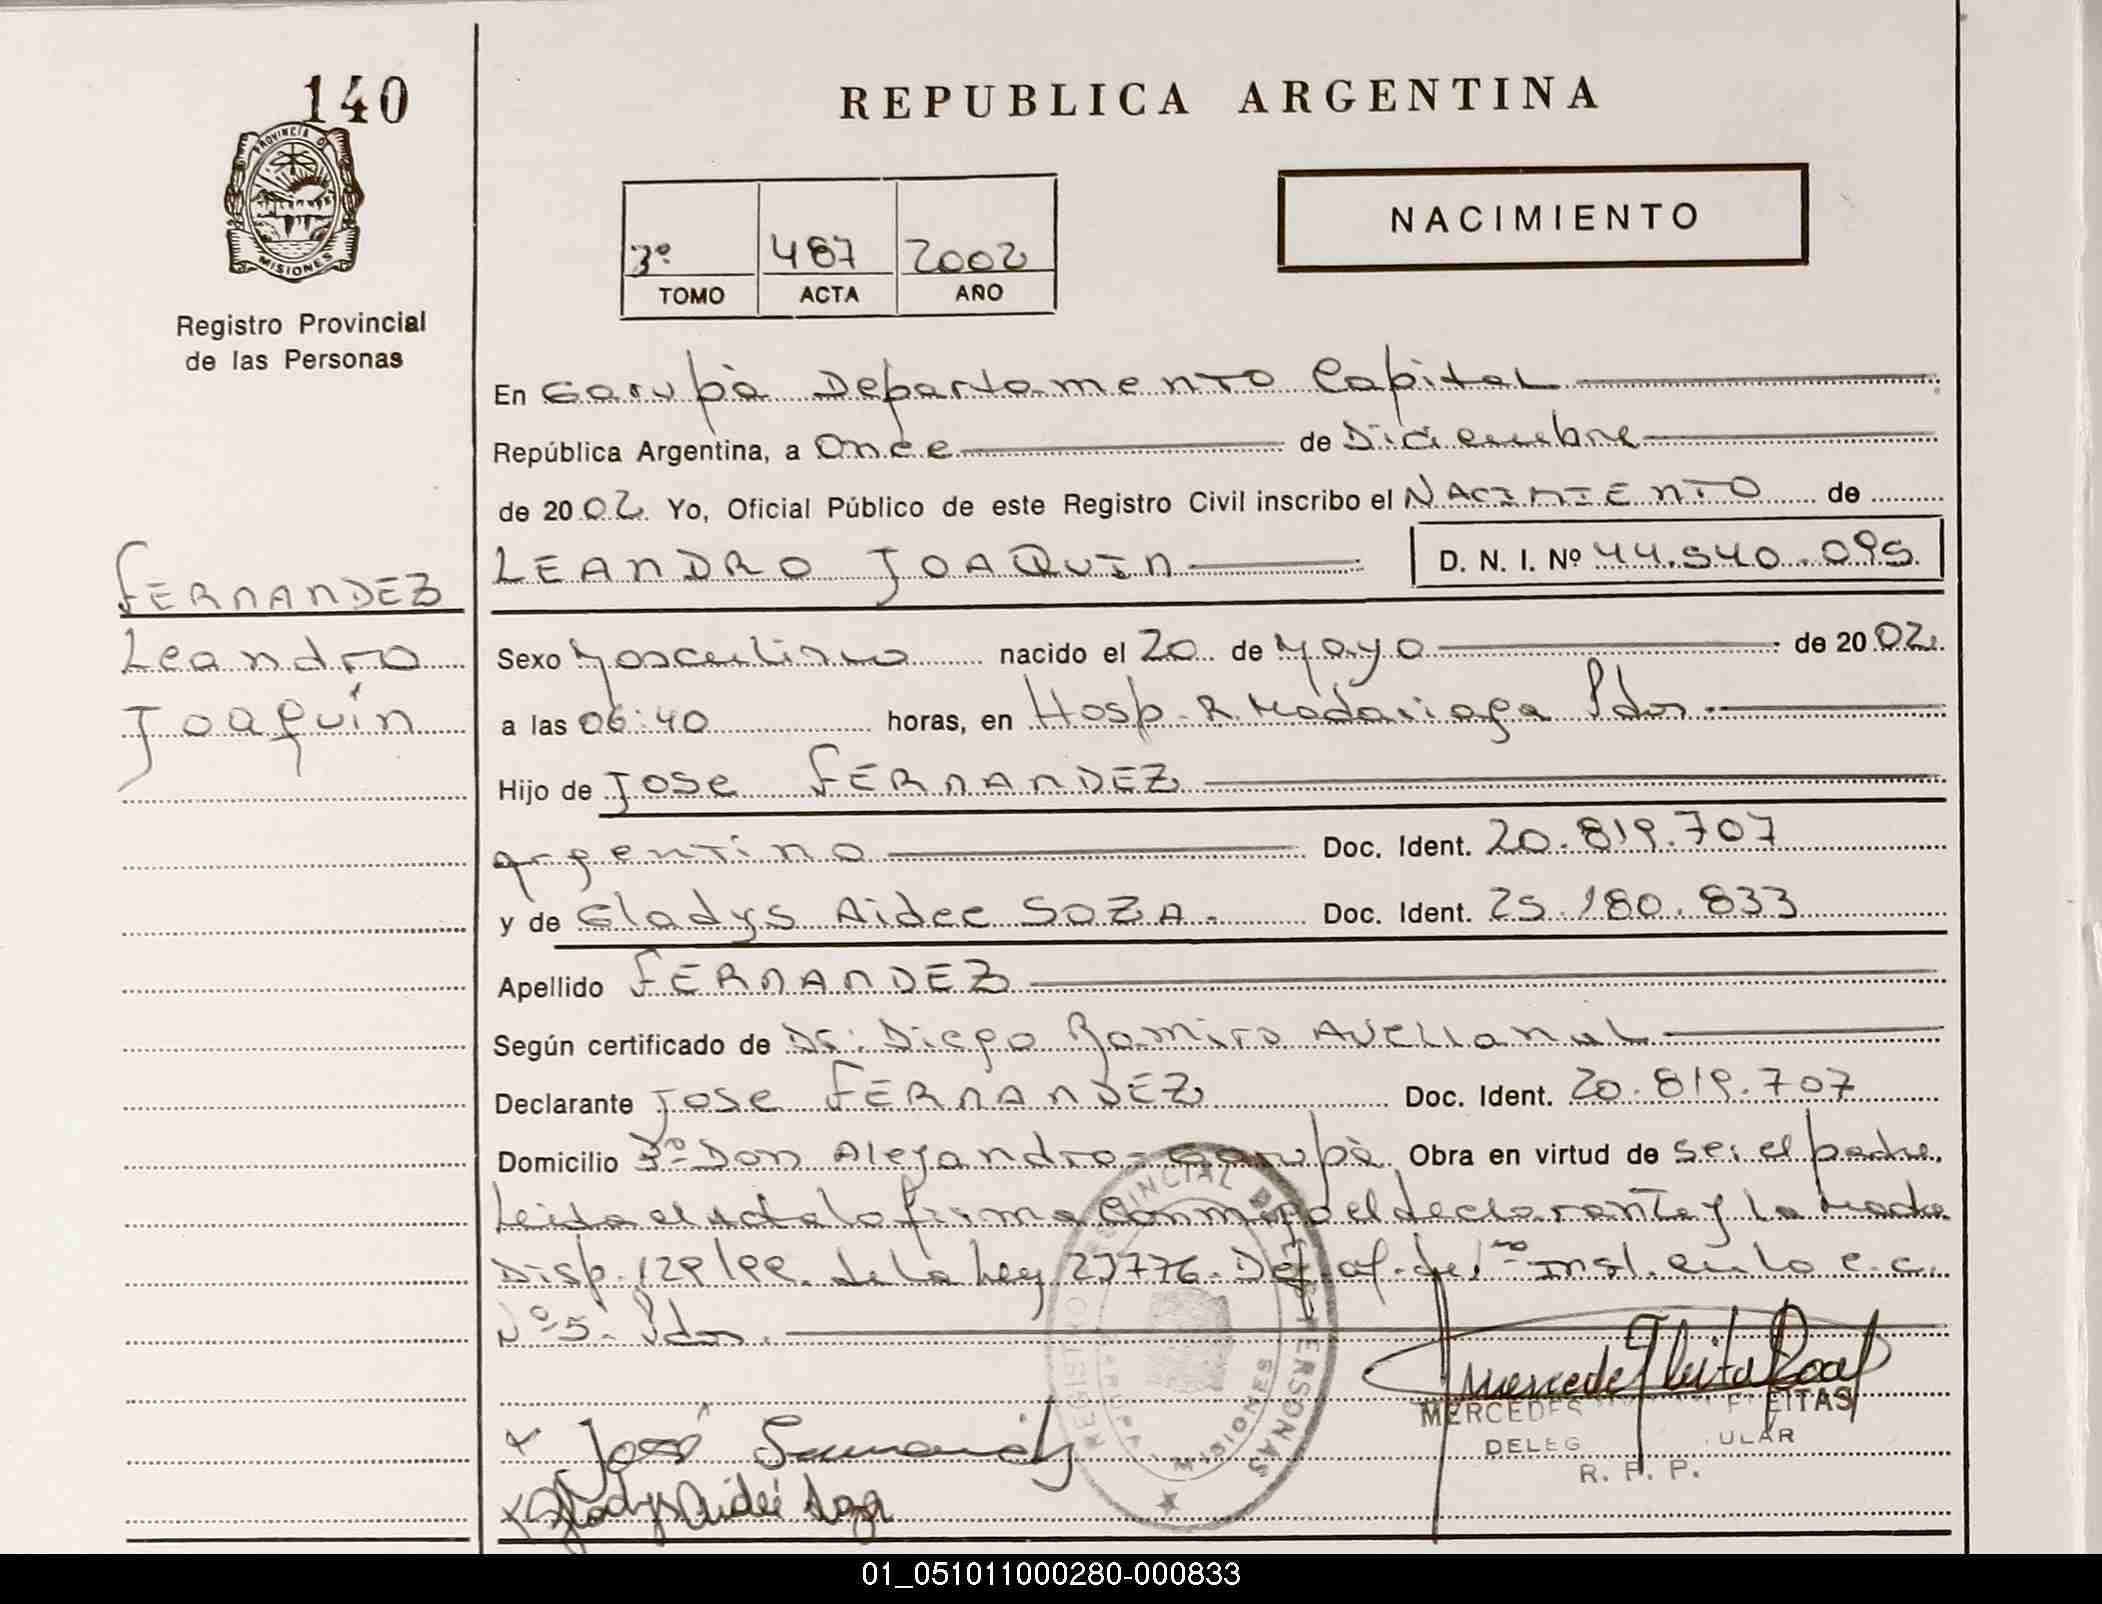 140
PROVINCIA D
MISIONES
Registro Provincial
de las Personas
FERNANDEZ
Leandro
Joaquín
REPUBLICA ARGENTINA
3º 487 2002
TOMO ACTA AÑO
NACIMIENTO
En Garupà Departamento Capital
República Argentina, a Once de Diciembre
de 2002 Yo, Oficial Público de este Registro Civil inscribo el NACIMIENTO de
LEANDRO JOAQUIN D. N. I. Nº 44.540.095
Sexo Masculino nacido el 20 de Mayo de 2002
a las 06:40 horas, en Hosp. R. Madariaga Pdas
Hijo de JOSE FERNANDEZ
argentino Doc. Ident. 20.819.707
y de Gladys Aidee SOZA Doc. Ident. 25.180.833
Apellido FERNANDEZ
Según certificado de Dr. Diego Ramiro Avellanal
Declarante JOSE FERNANDEZ Doc. Ident. 20.819.707
Domicilio Bº Don Alejandro - Garupà Obra en virtud de ser el padre,
Leida el acta la firma conmigo el declarante y la Madre
Disp. 129/99. de la Ley Def. of. de 1ra Inst. en lo c.c.
Nº 5. Pdas.
REGISTRO PROVINCIAL DE LAS PERSONAS
GARUPA MISIONES
José Fernandez
Gladys Aideé Soza
MERCEDES FREITAS
DELEG ULAR
R. P. P.
01_051011000280-000833